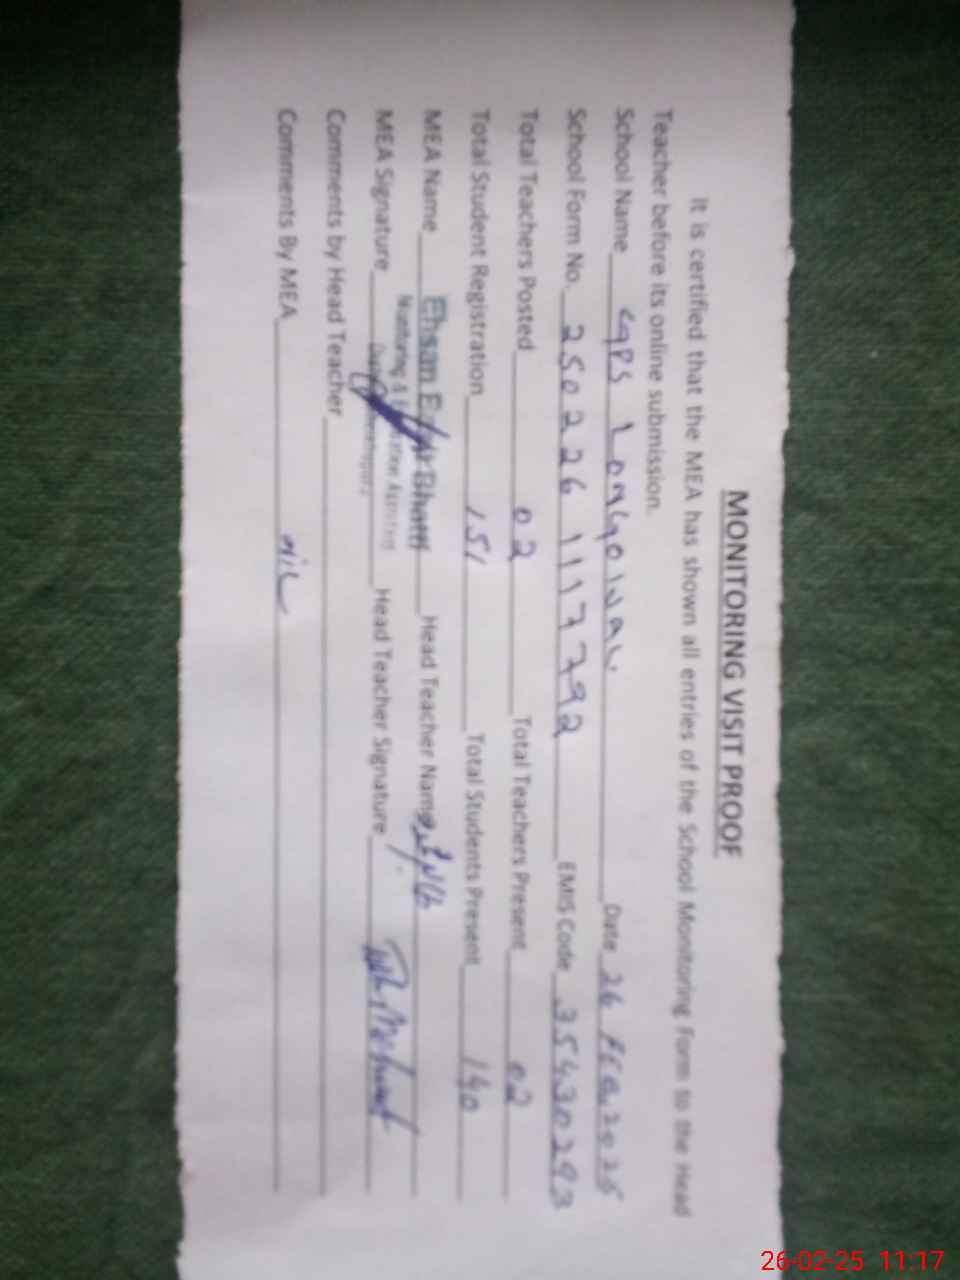 MONITORING VISIT PROOF
It is certified that the MEA has shown all entries of the School Monitoring Form to the Head
Teacher before its online submission.
School Name GPS Longowal. Date 26 Feb, 2025
School Form No. 250226 1117792 EMIS Code 35430293
Total Teachers Posted 02 Total Teachers Present 02
Total Student Registration 151 Total Students Present 140
MEA Name Ehsan Bhatti Head Teacher Name
Monitoring &
MEA Signature Head Teacher Signature
Comments by Head Teacher
Comments By MEA Nil
26-02-25 11:17